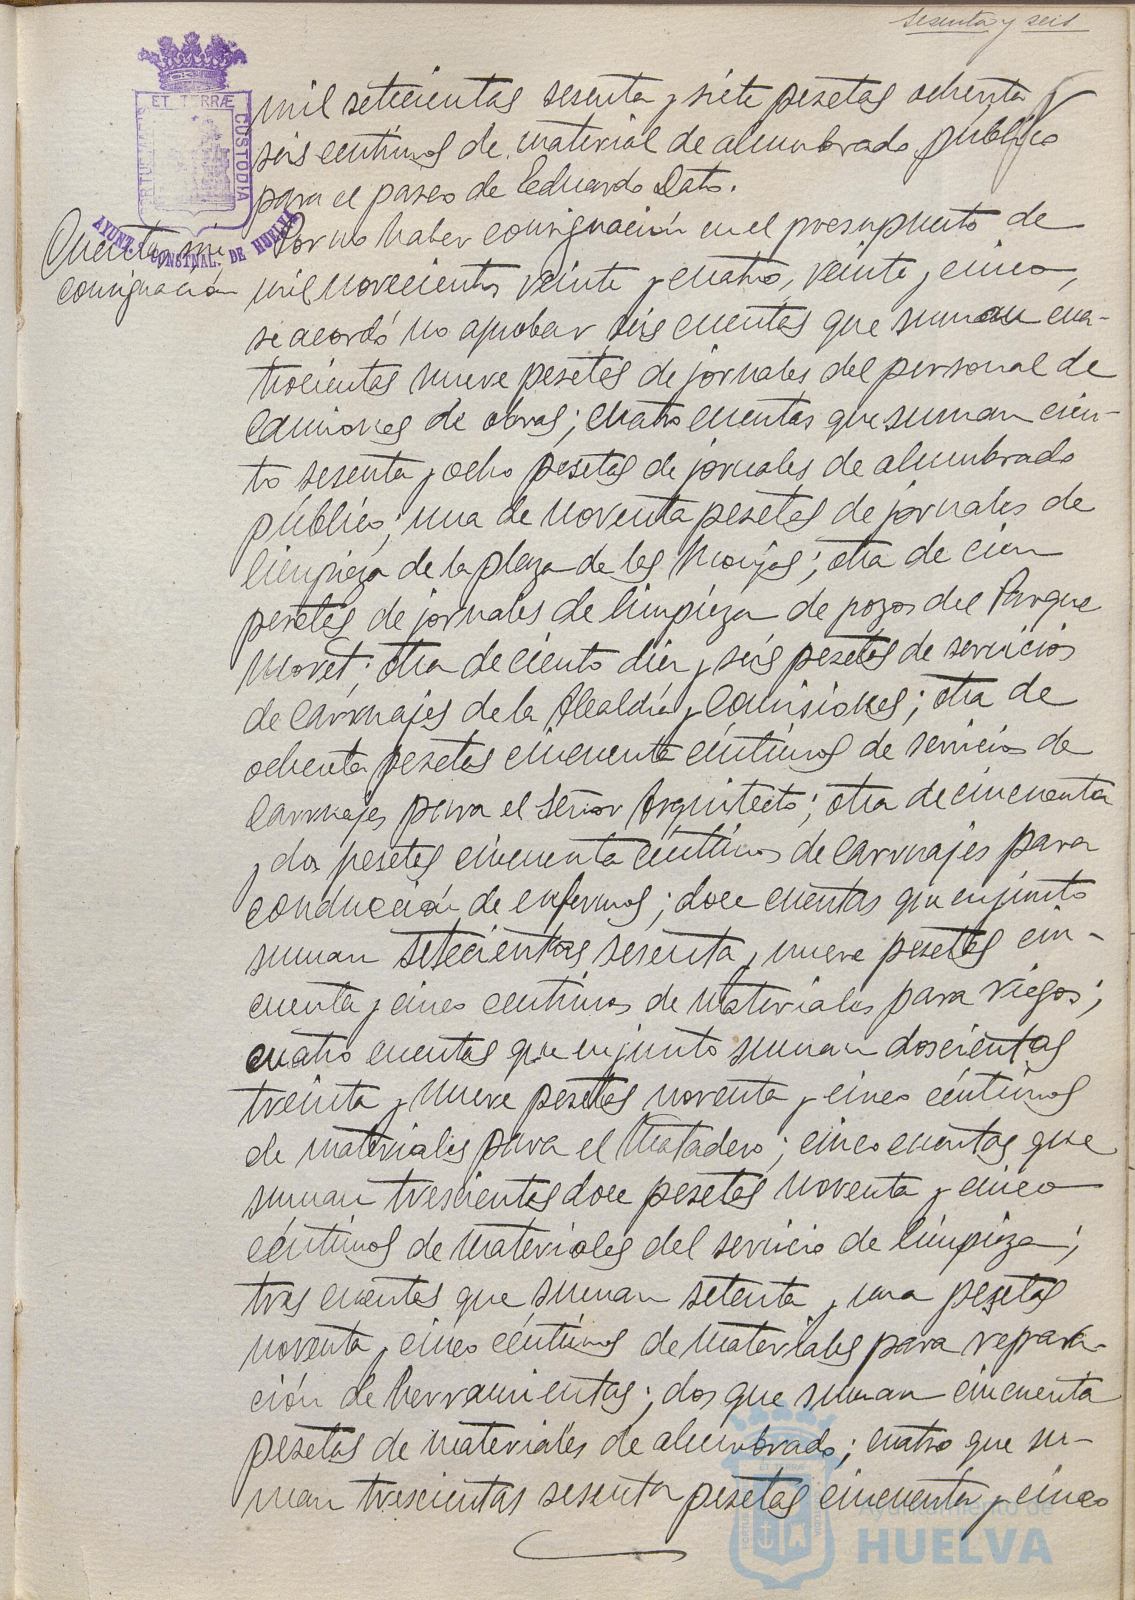 sesenta y seis
mil setecientas sesenta y siete pesetas ochenta y
seis centimos de material de alumbrado publico
para el paseo de Eduardo Dato.
ET TERRÆ
CUSTODIA
AYUNT. CONSTNAL. DE HUELVA
Cuentas sin
consignación
Por no haber consignación en el presupuesto de
mil novecientos veinte y cuatro, veinte y cinco,
se acordó no aprobar seis cuentas que suman cua-
trocientas nueve pesetas de jornales del personal de
Camiones de obras; cuatro cuentas que suman cien-
to sesenta y ocho pesetas de jornales de alumbrado
público; una de noventa pesetas de jornales de
limpieza de la plaza de las Monjas; otra de cien
pesetas de jornales de limpieza de pozos del Parque
Moret; otra de ciento diez y seis pesetas de servicios
de carruajes de la Alcaldía y Comisiones; otra de
ochenta pesetas cincuenta céntimos de servicio de
carruajes para el Señor Arquitecto; otra de cincuenta
y dos pesetas cincuenta céntimos de carruajes para
conducción de enfermos; doce cuentas que en junto
suman setecientas sesenta y nueve pesetas cin-
cuenta y cinco centimos de Materiales para riegos;
cuatro cuentas que en junto suman doscientas
treinta y nueve pesetas noventa y cinco céntimos
de materiales para el Matadero; cinco cuentas que
suman trescientas doce pesetas noventa y cinco
céntimos de Materiales del servicio de limpieza;
tres cuentas que suman setenta y una pesetas
noventa y cinco céntimos de Materiales para repara-
ción de herramientas; dos que suman cincuenta
pesetas de materiales de alumbrado; cuatro que su-
man trescientas sesenta pesetas cincuenta y cinco
Ayuntamiento de
HUELVA